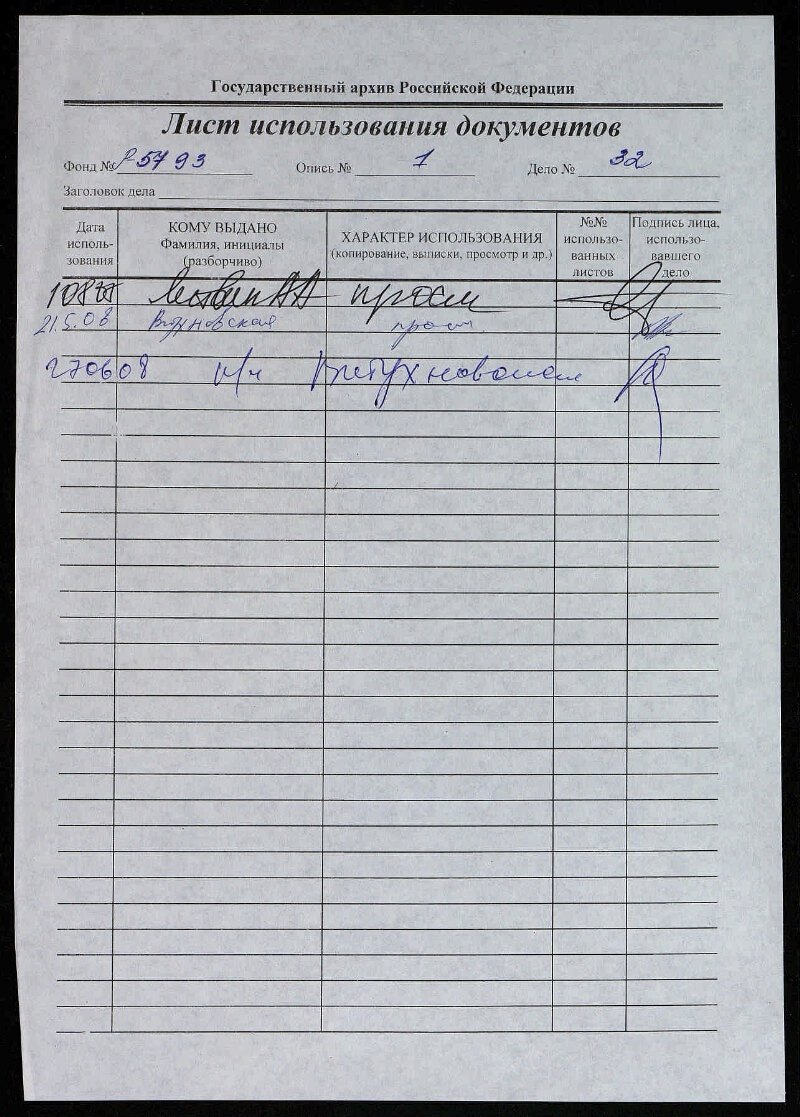 Государственный архив Российской Федерации
Лист использования документов
Фонд № Р5793 Опись № 1 Дело № 32
Заголовок дела
Дата использования
КОМУ ВЫДАНО
Фамилия, инициалы
(разборчиво)
ХАРАКТЕР ИСПОЛЬЗОВАНИЯ
(копирование, выписки, просмотр и др.)
№№
использо-
ванных
листов
Подпись лица,
использо-
вавшего
дело
просм
21.5.08
270608 н/ч